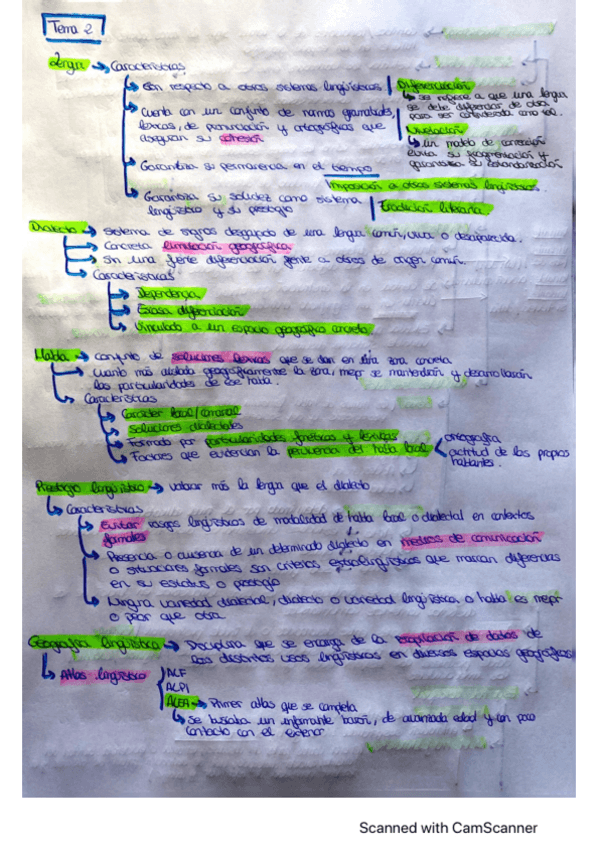 Tema 2
Lengua → Características
Con respecto a otros sistemas lingüísticos
Diferenciación
se refiere a que una lengua
se debe diferenciar de otra
para ser considerada como tal.
Cuenta con un conjunto de normas gramaticales,
léxicas, de pronunciación y ortográficas que
aseguran su cohesión
Nivelación
un modelo de corrección
evita su fragmentación y
garantiza su estandarización
Garantiza su permanencia en el tiempo
Imposición a otros sistemas lingüísticos.
Garantiza su solidez como sistema
lingüístico y su prestigio
Tradición literaria.
Dialecto → Sistema de signos desgajado de una lengua común, viva o desaparecida.
Concreta limitación geográfica
Sin una fuerte diferenciación frente a otros de origen común.
Características
Dependencia
Escasa diferenciación
Vinculado a un espacio geográfico concreto
Habla → Conjunto de soluciones léxicas que se dan en una zona concreta
Cuanto más aislada geográficamente la zona, mejor se mantendrán y desarrollarán
las particularidades de ese habla.
Características
Carácter local/comarcal
Soluciones dialectales
Formado por particularidades fonéticas y léxicas
Factores que evidencian la pervivencia del habla local
orografía
actitud de los propios
hablantes.
Prestigio lingüístico → valorar más la lengua que el dialecto
Características
Evitar rasgos lingüísticos de modalidad de habla local o dialectal en contextos
formales
Presencia o ausencia de un determinado dialecto en medios de comunicación
o situaciones formales son criterios extralingüísticos que marcan diferencias
en su estatus o prestigio
Ninguna variedad dialectal, dialecto o variedad lingüística o habla es mejor
o peor que otra
Geografía lingüística → Disciplina que se encarga de la recopilación de datos de
los distintos usos lingüísticos en diversos espacios geográficos
Atlas lingüístico
ALF
ALPI
ALEA → Primer atlas que se completa
Se buscaba un informante varón, de avanzada edad y con poco
contacto con el exterior
Scanned with CamScanner